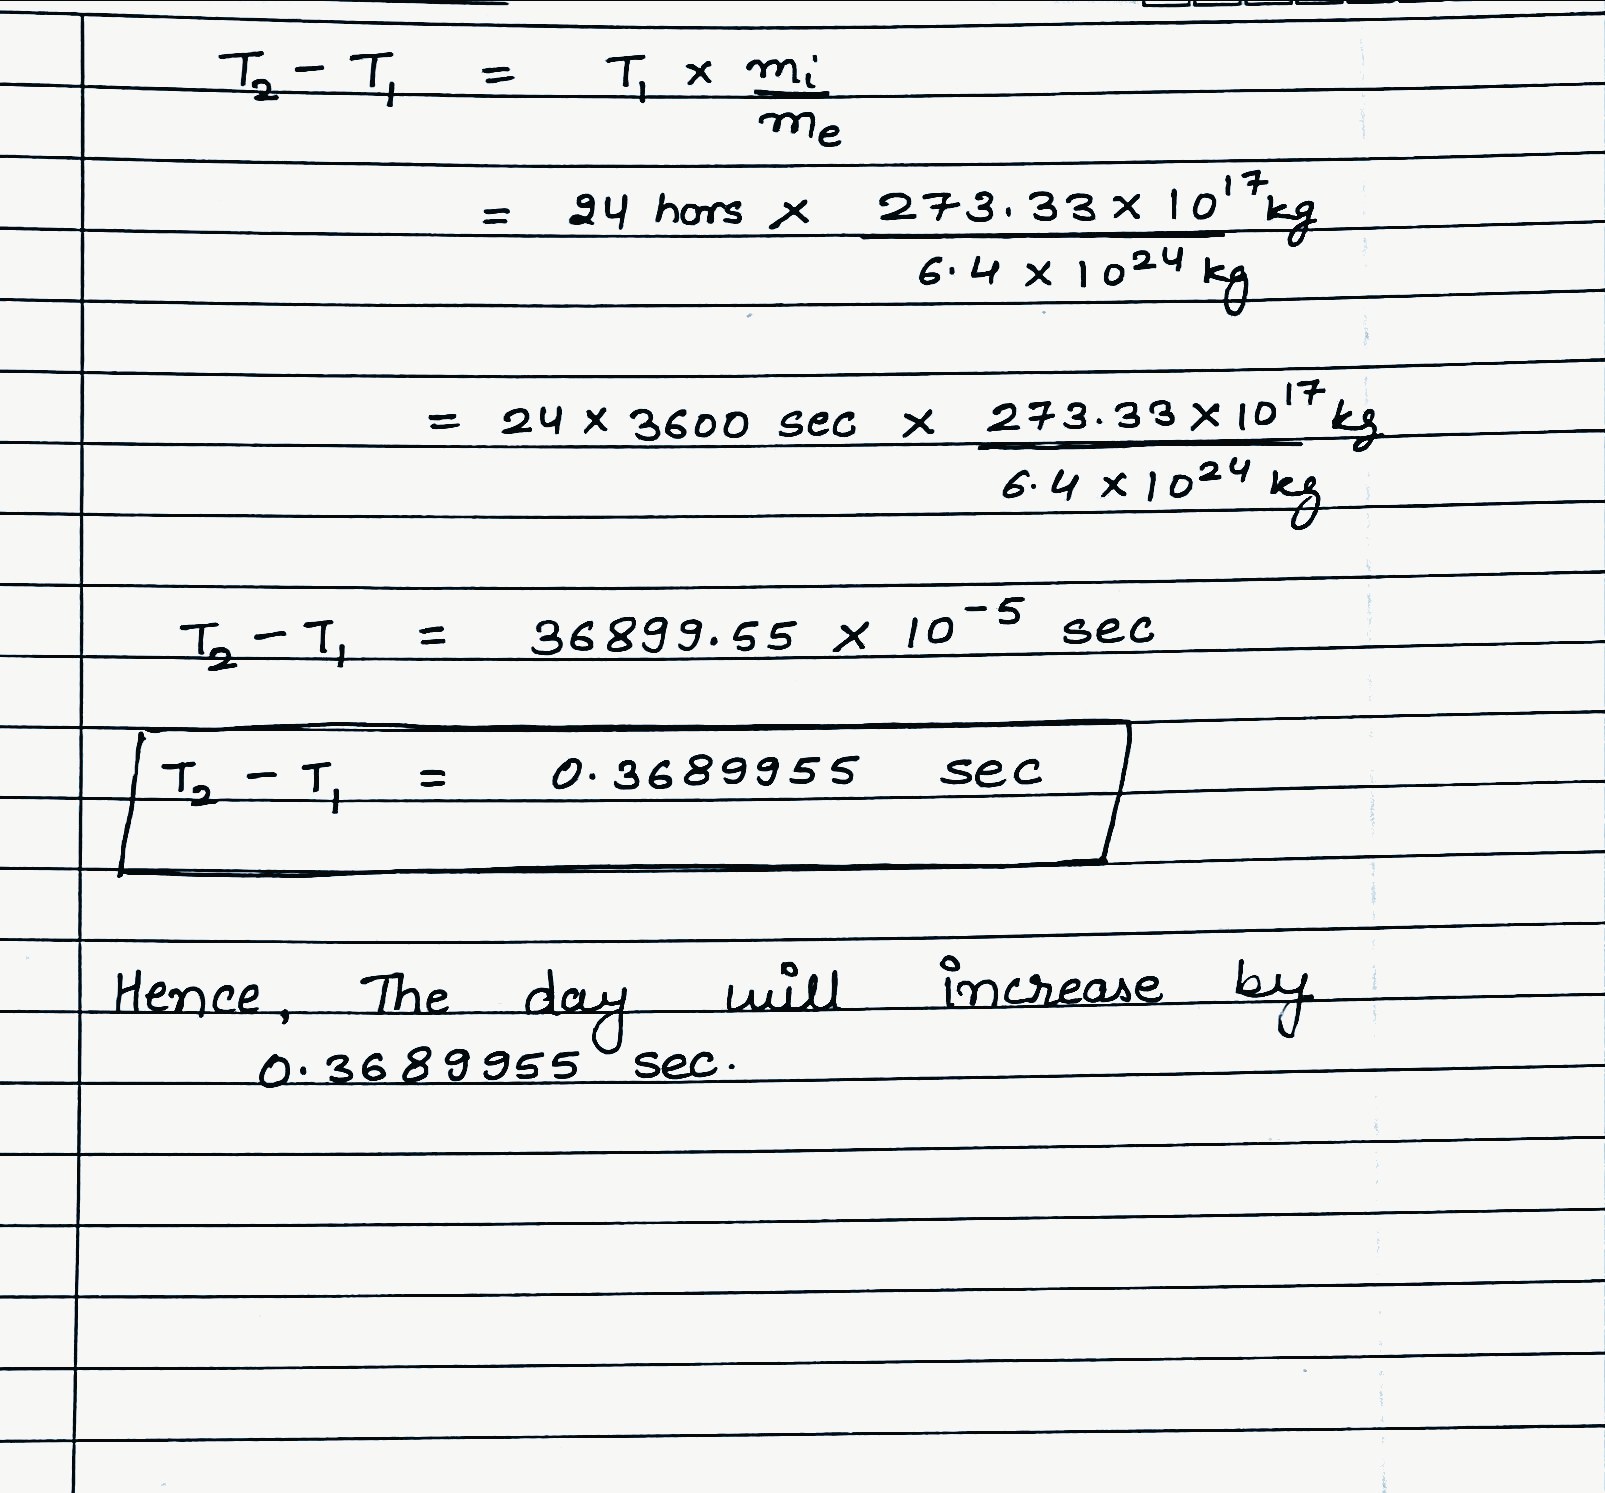 T₂ - T₁ = T₁ × mᵢ/mₑ
= 24 hors × 273.33 × 10¹⁷ kg / 6.4 × 10²⁴ kg
= 24 × 3600 sec × 273.33 × 10¹⁷ kg / 6.4 × 10²⁴ kg
T₂ - T₁ = 36899.55 × 10⁻⁵ sec
T₂ - T₁ = 0.3689955 sec
Hence, The day will increase by
0.3689955 sec.